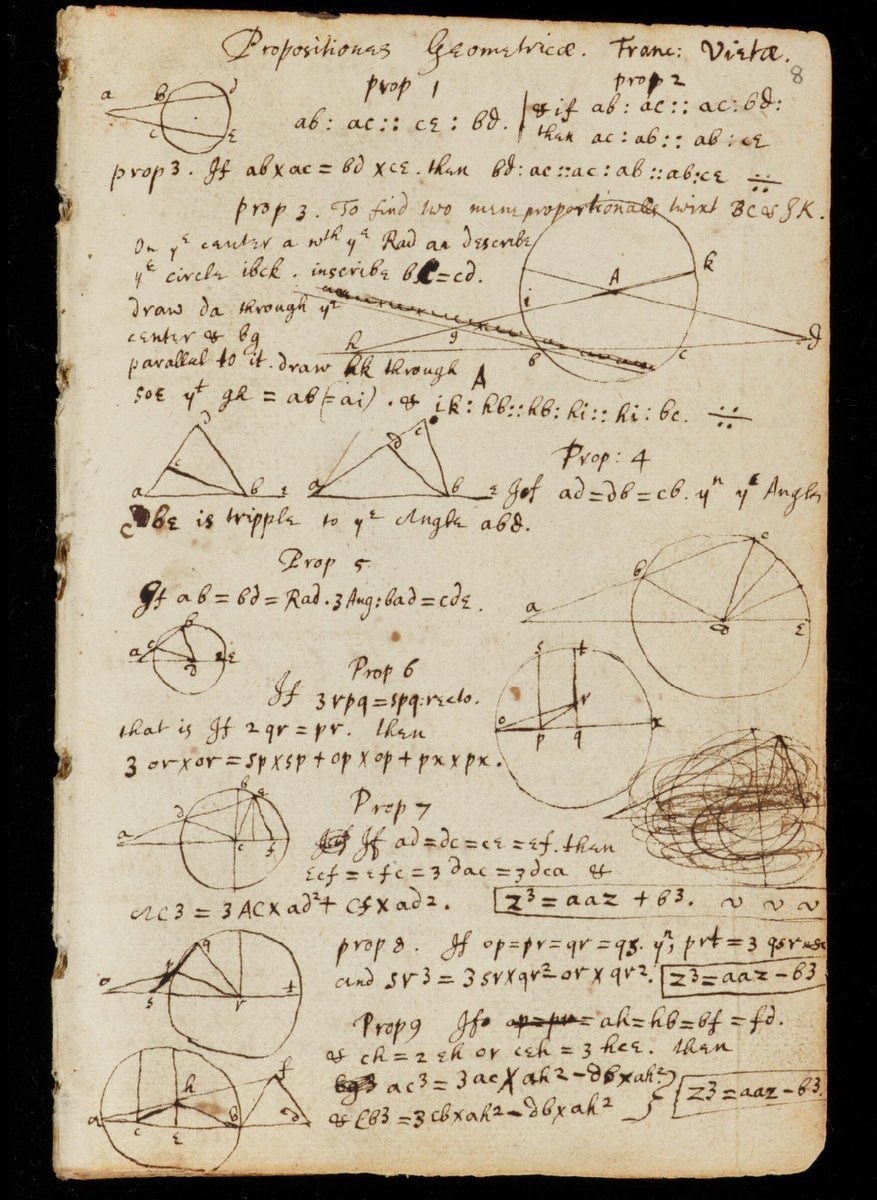 Propositiones Geometricæ. Franc: Vietæ.
8
prop 1
ab: ac:: cε: bd.
prop 2
& if ab: ac:: ac: bd:
then ac: ab:: ab: cε
prop 3. If ab×ac = bd×cε. then bd: ac::ac: ab::ab:cε ÷
prop 3. To find two meane proportionalls twixt Bc & gk.
On yᵉ center a wᵗʰ yᵉ Rad ab describe
yᵉ circle ibck. inscribe bc=cd.
draw da through yᵉ
center & bg
parallel to it. draw hk through A
soe yᵗ gh = ab (=ai). & ik: hb::hb: hi:: hi: bc. ÷
Prop: 4
If ad=db=cb. yⁿ yᵉ Angle
cbε is tripple to yᵉ Angle abd.
Prop 5
If ab=bd=Rad. 3 Ang: bad=cdε.
Prop 6
If 3rpq=spq:recto.
that is If 2qr=pr. then
3 or×or = sp×sp + op×op + px×px.
Prop 7
If ad=dc=cε=εf. then
εcf = εfc = 3 dac = 3dca &
AC3 = 3AC×ad²+ cf×ad2.
z³=aaz + b3.
prop 8. If op=pr=qr=qs. yⁿ, prt = 3 qsr
and sr3 = 3sr×qr²-or×qr².
z³=aaz-b3
Prop 9 If ah=hb=bf=fd.
& ch=2εh or cεh = 3 hcε. then
ac³ = 3ac×ah²-db×ah²
& cb³ = 3cb×ah²-db×ah²
z³=aaz-b3.